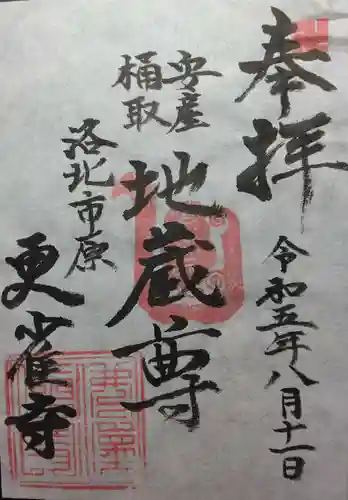 奉拝
令和五年八月十一日
安産
桶取
地蔵尊
洛北市原
更雀寺